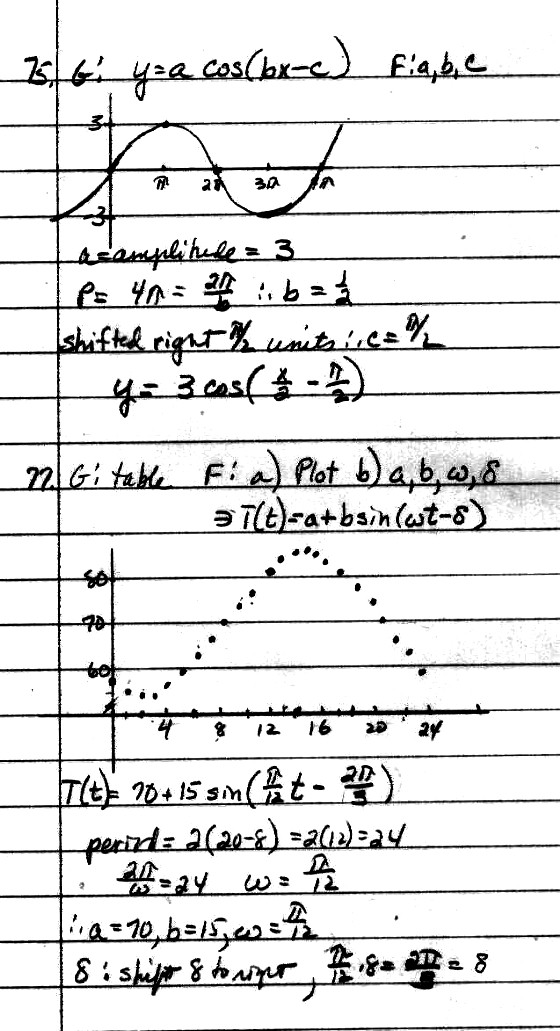 75. G: y=a cos(bx-c) F: a, b, c
3
π 2π 3π 4π
-3
a=amplitude = 3
P= 4π = 2π/b ∴ b = 1/2
shifted right π/2 units ∴ c= π/2
y= 3 cos( x/2 - π/2 )
77. G: table F: a) Plot b) a, b, ω, δ
∋ T(t)=a+b sin(ωt-δ)
80
70
60
4 8 12 16 20 24
T(t)= 70+15 sin( π/12 t - 2π/3 )
period= 2(20-8) =2(12)=24
2π/ω =24 ω= π/12
∴ a=70, b=15, ω= π/12
δ : shift 8 to right , π/12 · 8= 2π/3 = δ